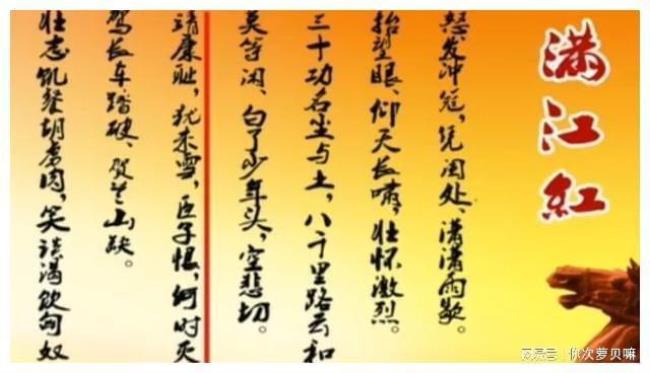 满江紅
怒发冲冠，凭阑处、潇潇雨歇。
抬望眼、仰天长啸，壮怀激烈。
三十功名尘与土，八千里路云和
莫等闲、白了少年头，空悲切。
靖康耻，犹未雪，臣子恨，何时灭
驾长车踏破、贺兰山缺。
壮志饥餐胡虏肉，笑谈渴饮匈奴
搜狐号@你次夢贝嘛